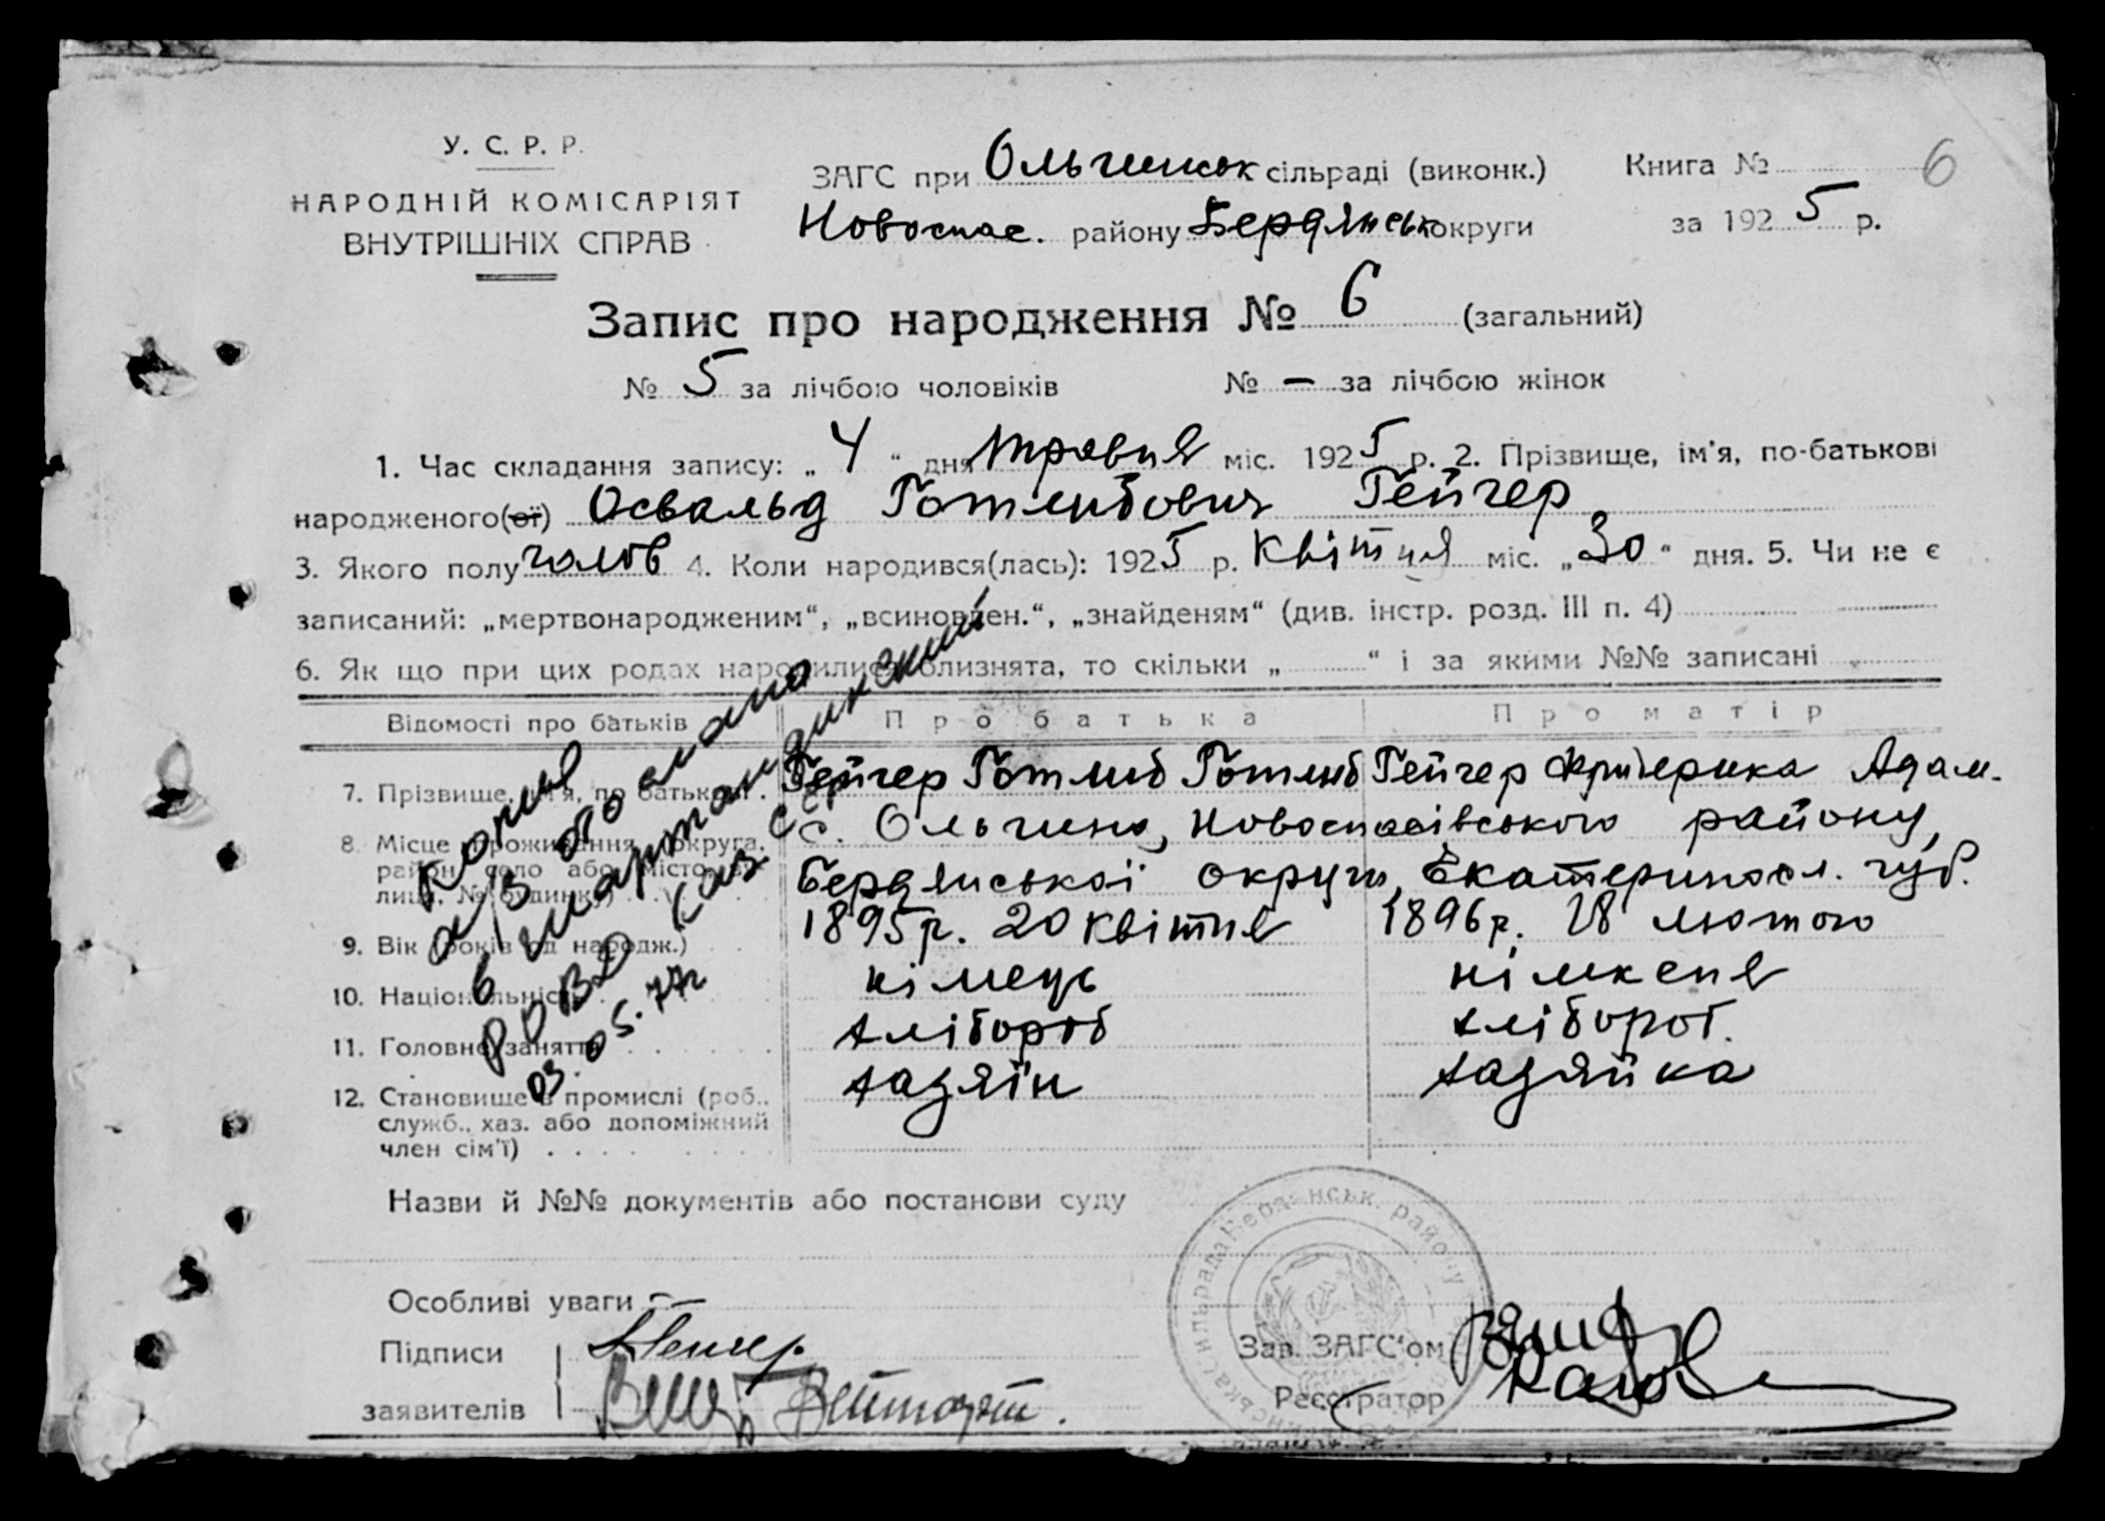 У. С. Р. Р.
НАРОДНІЙ КОМІСАРІЯТ
ВНУТРІШНІХ СПРАВ
ЗАГС при Ольгинськ сільраді (виконк.)
Новоспас. району Бердянськ округи
Книга № 6
за 1925 р.
Запис про народження № 6 (загальний)
№ 5 за лічбою чоловіків № — за лічбою жінок
1. Час складання запису: „ 4 “ дня травня міс. 1925 р. 2. Прізвище, ім'я, по-батькові
народженого(ої) Освальд Готлибович Гейгер
3. Якого полу чолов 4. Коли народився(лась): 1925 р. Квітня міс. „30“ дня. 5. Чи не є
записаний: „мертвонародженим“, „всиновлен.“, „знайденям“ (див. інстр. розд. III п. 4)
6. Як що при цих родах народилися близнята, то скільки „ “ і за якими №№ записані
Відомості про батьків Про батька Про матір
7. Прізвище, ім'я, по батькові. Гейгер Готлиб Готлиб Гейгер Фридерика Адам.
8. Місце проживання, округа, район, село або місто, лиця, № будинку) с. Ольгино, Новоспасівського району,
Бердянської округи, Екатериносл. губ.
9. Вік (років од народж.) 1895 р. 20 квітня 1896 р. 28 лютого
10. Національність німець німкеня
11. Головне заняття хлібороб хлібороб.
12. Становище в промислі (роб., служб., хаз. або допоміжний член сім'ї) хазяїн хазяйка
Копия
а/з отослана
в Мартандикский
РОВД Каз ССР
03.05.77г
Назви й №№ документів або постанови суду
Особливі уваги —
Підписи
заявителів
Зав. ЗАГС'ом
Реєстратор